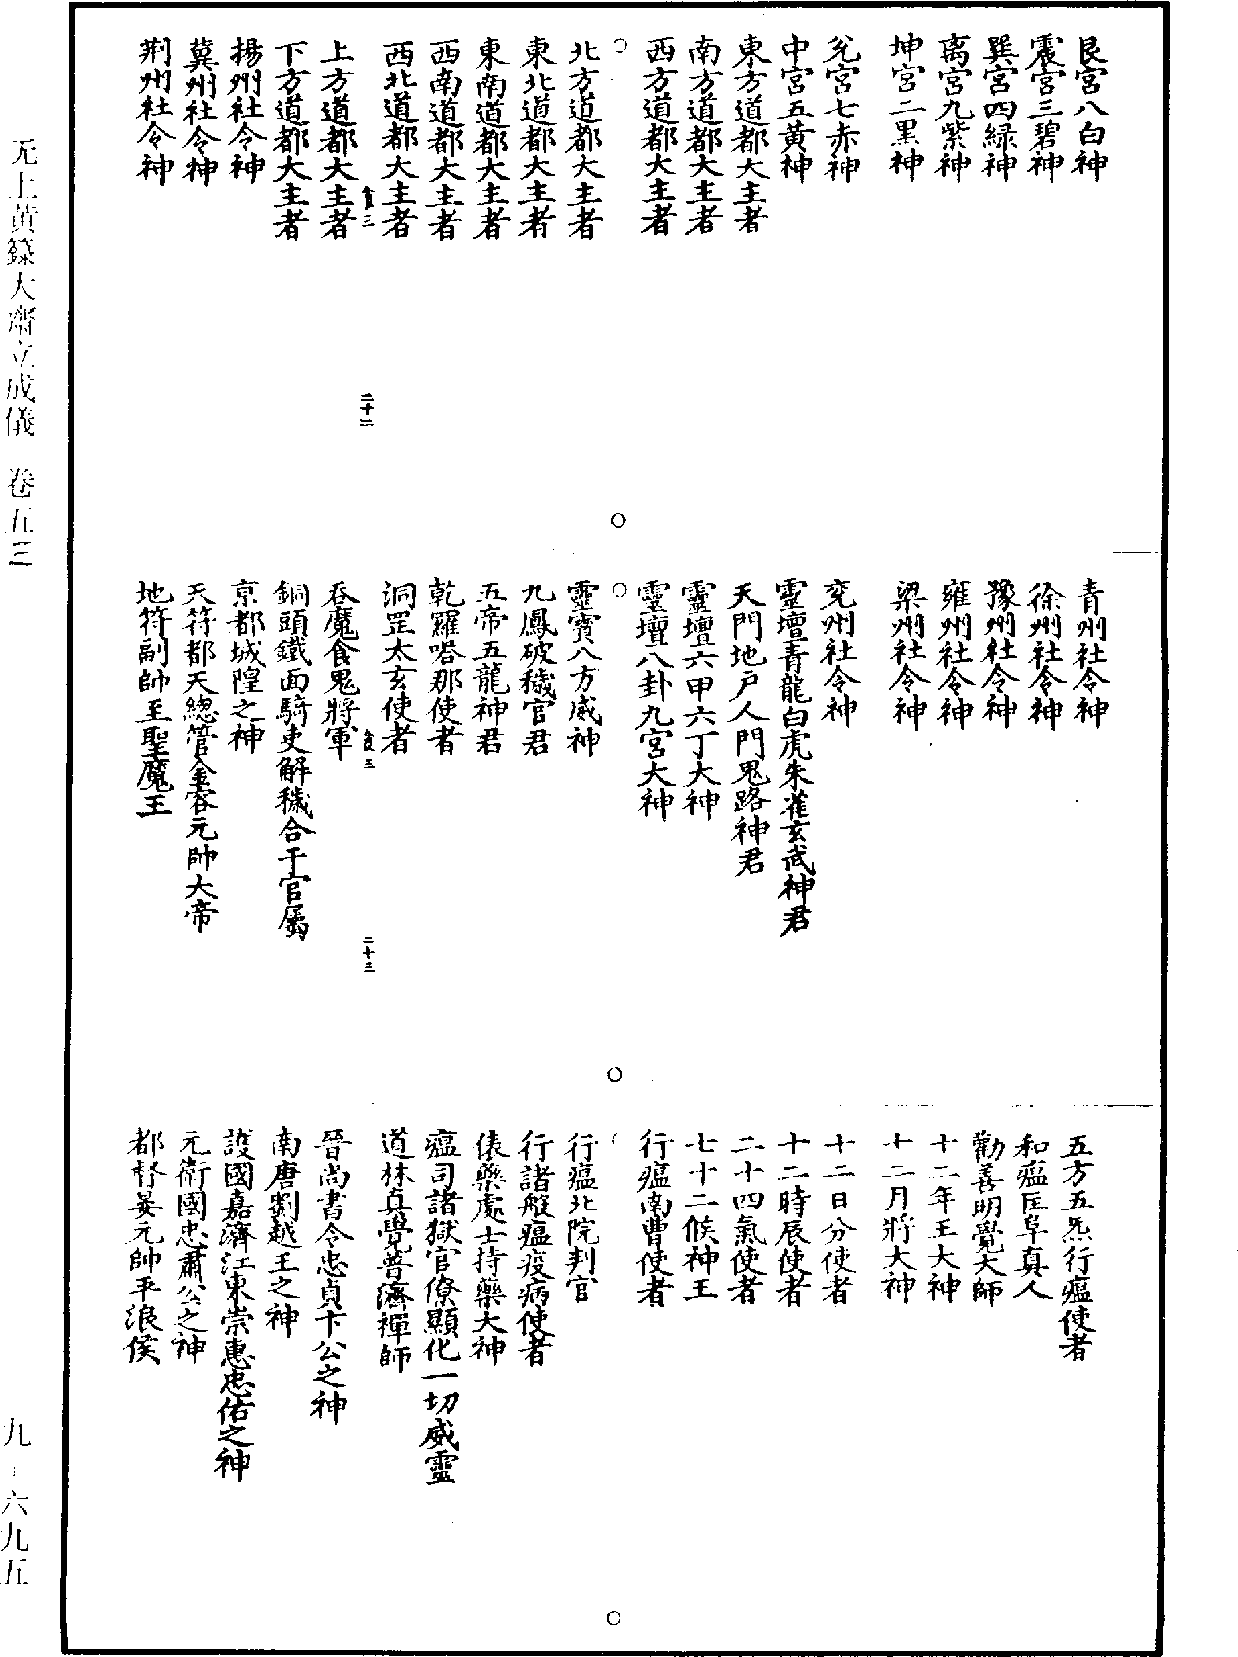 艮宮八白神
震宮三碧神
巽宮四綠神
离宮九紫神
坤宮二黑神
兊宮七赤神
中宮五黃神
東方道都大主者
南方道都大主者
西方道都大主者
北方道都大主者
東北道都大主者
東南道都大主者
西南道都大主者
西北道都大主者
二十二
上方道都大主者
下方道都大主者
揚州社令神
冀州社令神
荆州社令神
青州社令神
徐州社令神
豫州社令神
雍州社令神
梁州社令神
兖州社令神
靈壇青龍白虎朱雀玄武神君
天門地戶人門鬼路神君
靈壇六甲六丁大神
靈壇八卦九宮大神
靈寳八方威神
九鳳破穢官君
五帝五龍神君
乾羅嗒那使者
洞罡太玄使者
二十三
吞魔食鬼將軍
銅頭鐵面騎吏解穢合干官屬
京都城隍之神
天符都天總管金容元帥大帝
地符副帥至聖魔王
五方五炁行瘟使者
和瘟匡阜真人
勸善明覺大師
十二年王大神
十二月將大神
十二日分使者
十二時辰使者
二十四氣使者
七十二候神王
行瘟南曹使者
行瘟北院判官
行諸般瘟疫病使者
俵藥處士持藥大神
瘟司諸獄官僚顯化一切威靈
道林真覺普濟禪師
晉尚書令忠貞卞公之神
南唐劉越王之神
護國嘉濟江東崇惠忠佑之神
元衛國忠肅公之神
都督晏元帥平浪侯
无上黄籙大齋立成儀 卷五三
九-六九五